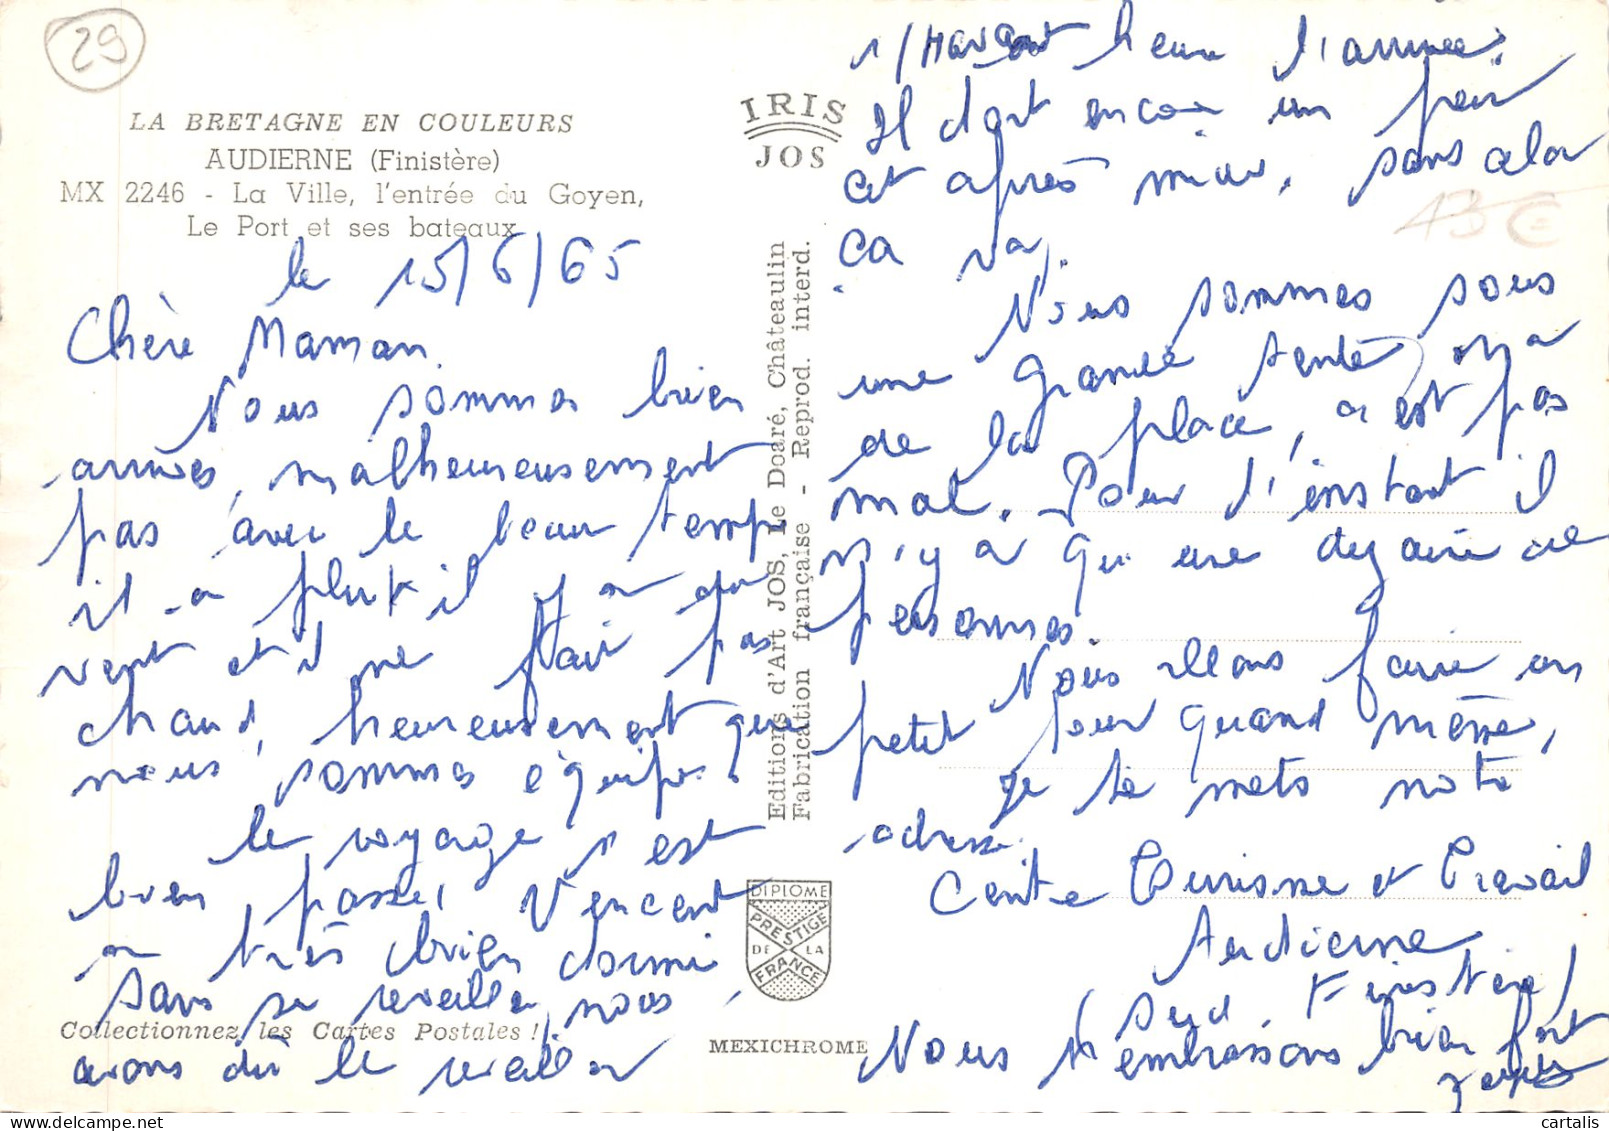 29
LA BRETAGNE EN COULEURS
AUDIERNE (Finistère)
MX 2246 - La Ville, l'entrée du Goyen,
Le Port et ses bateaux
le 15/6/65
Chère Maman.
Nous sommes bien
arrivés, malheureusement
pas avec le beau temps
il a plut il y a du
vent et il ne fait pas
chaud, heureusement que
nous sommes équipés.
Le voyage s'est
bien passé, Vencent
a très bien dormi
sans se reveiller, nous
avons dû le reveiller
Collectionnez les Cartes Postales !
IRIS
JOS
Editions d'Art JOS, Le Doaré, Châteaulin
Fabrication française - Reprod. interd.
DIPLOME
PRESTIGE
DE LA
FRANCE
MEXICHROME
heure l'arrivée.
Il dort encore un peu
et après midi, sans cela
ça va.
Nous sommes sous
une grande tente, on a
de la place, c'est pas
mal. Pour l'instant il
n'y a qu'une dizaine de
personnes.
Nous allons faire un
petit tour quand même,
je te mets notre
adresse.
Centre Tourisme et Travail
Audierne
(Sud Finistère)
Nous t'embrassons bien fort
13 €
www.delcampe.net
cartalis